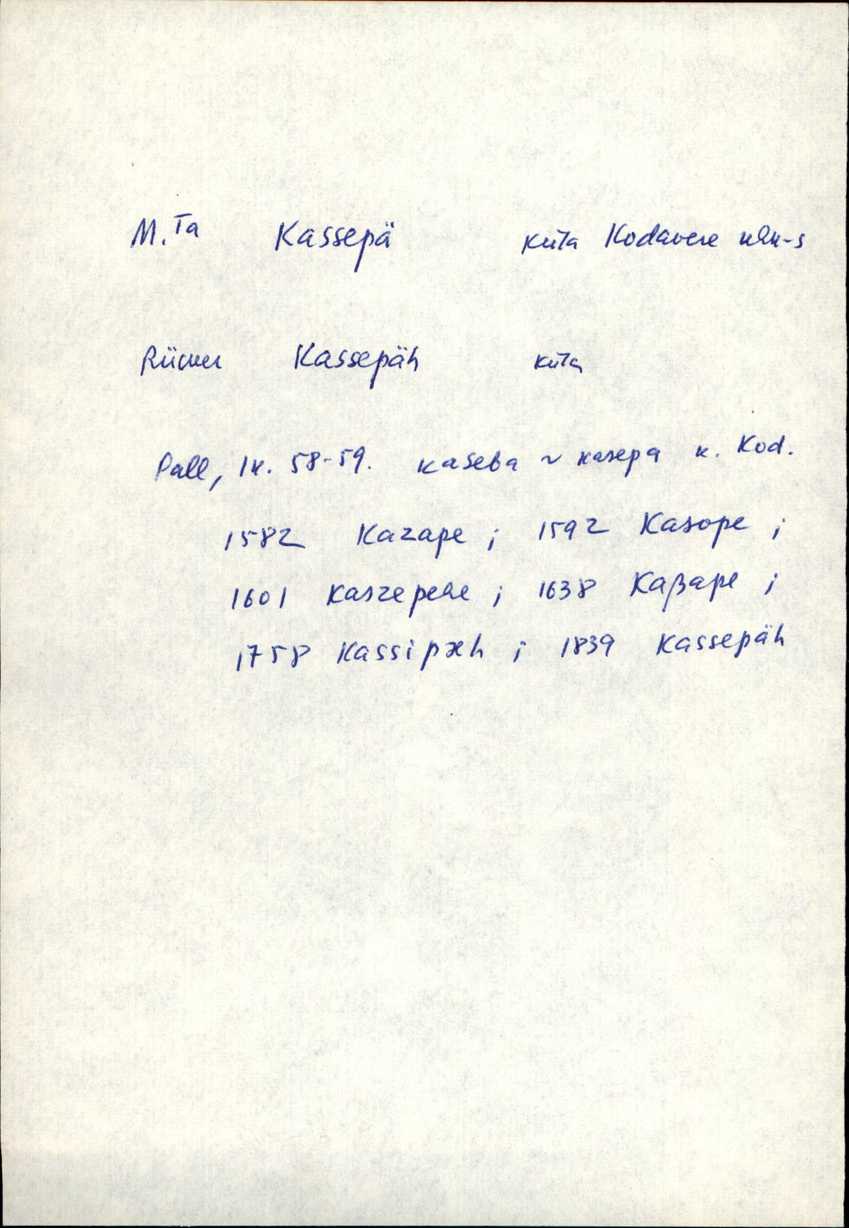 M. Ta Kassepä küla Kodavere khk-s
Rücker Kassepäh küla
Pall, lk. 58-59. kaseba ~ kasepa k. Kod.
1582 Kazape ; 1592 Kasope ;
1601 Kaszepehe ; 1638 Kaβape ;
1758 Kassipæh ; 1839 Kassepäh